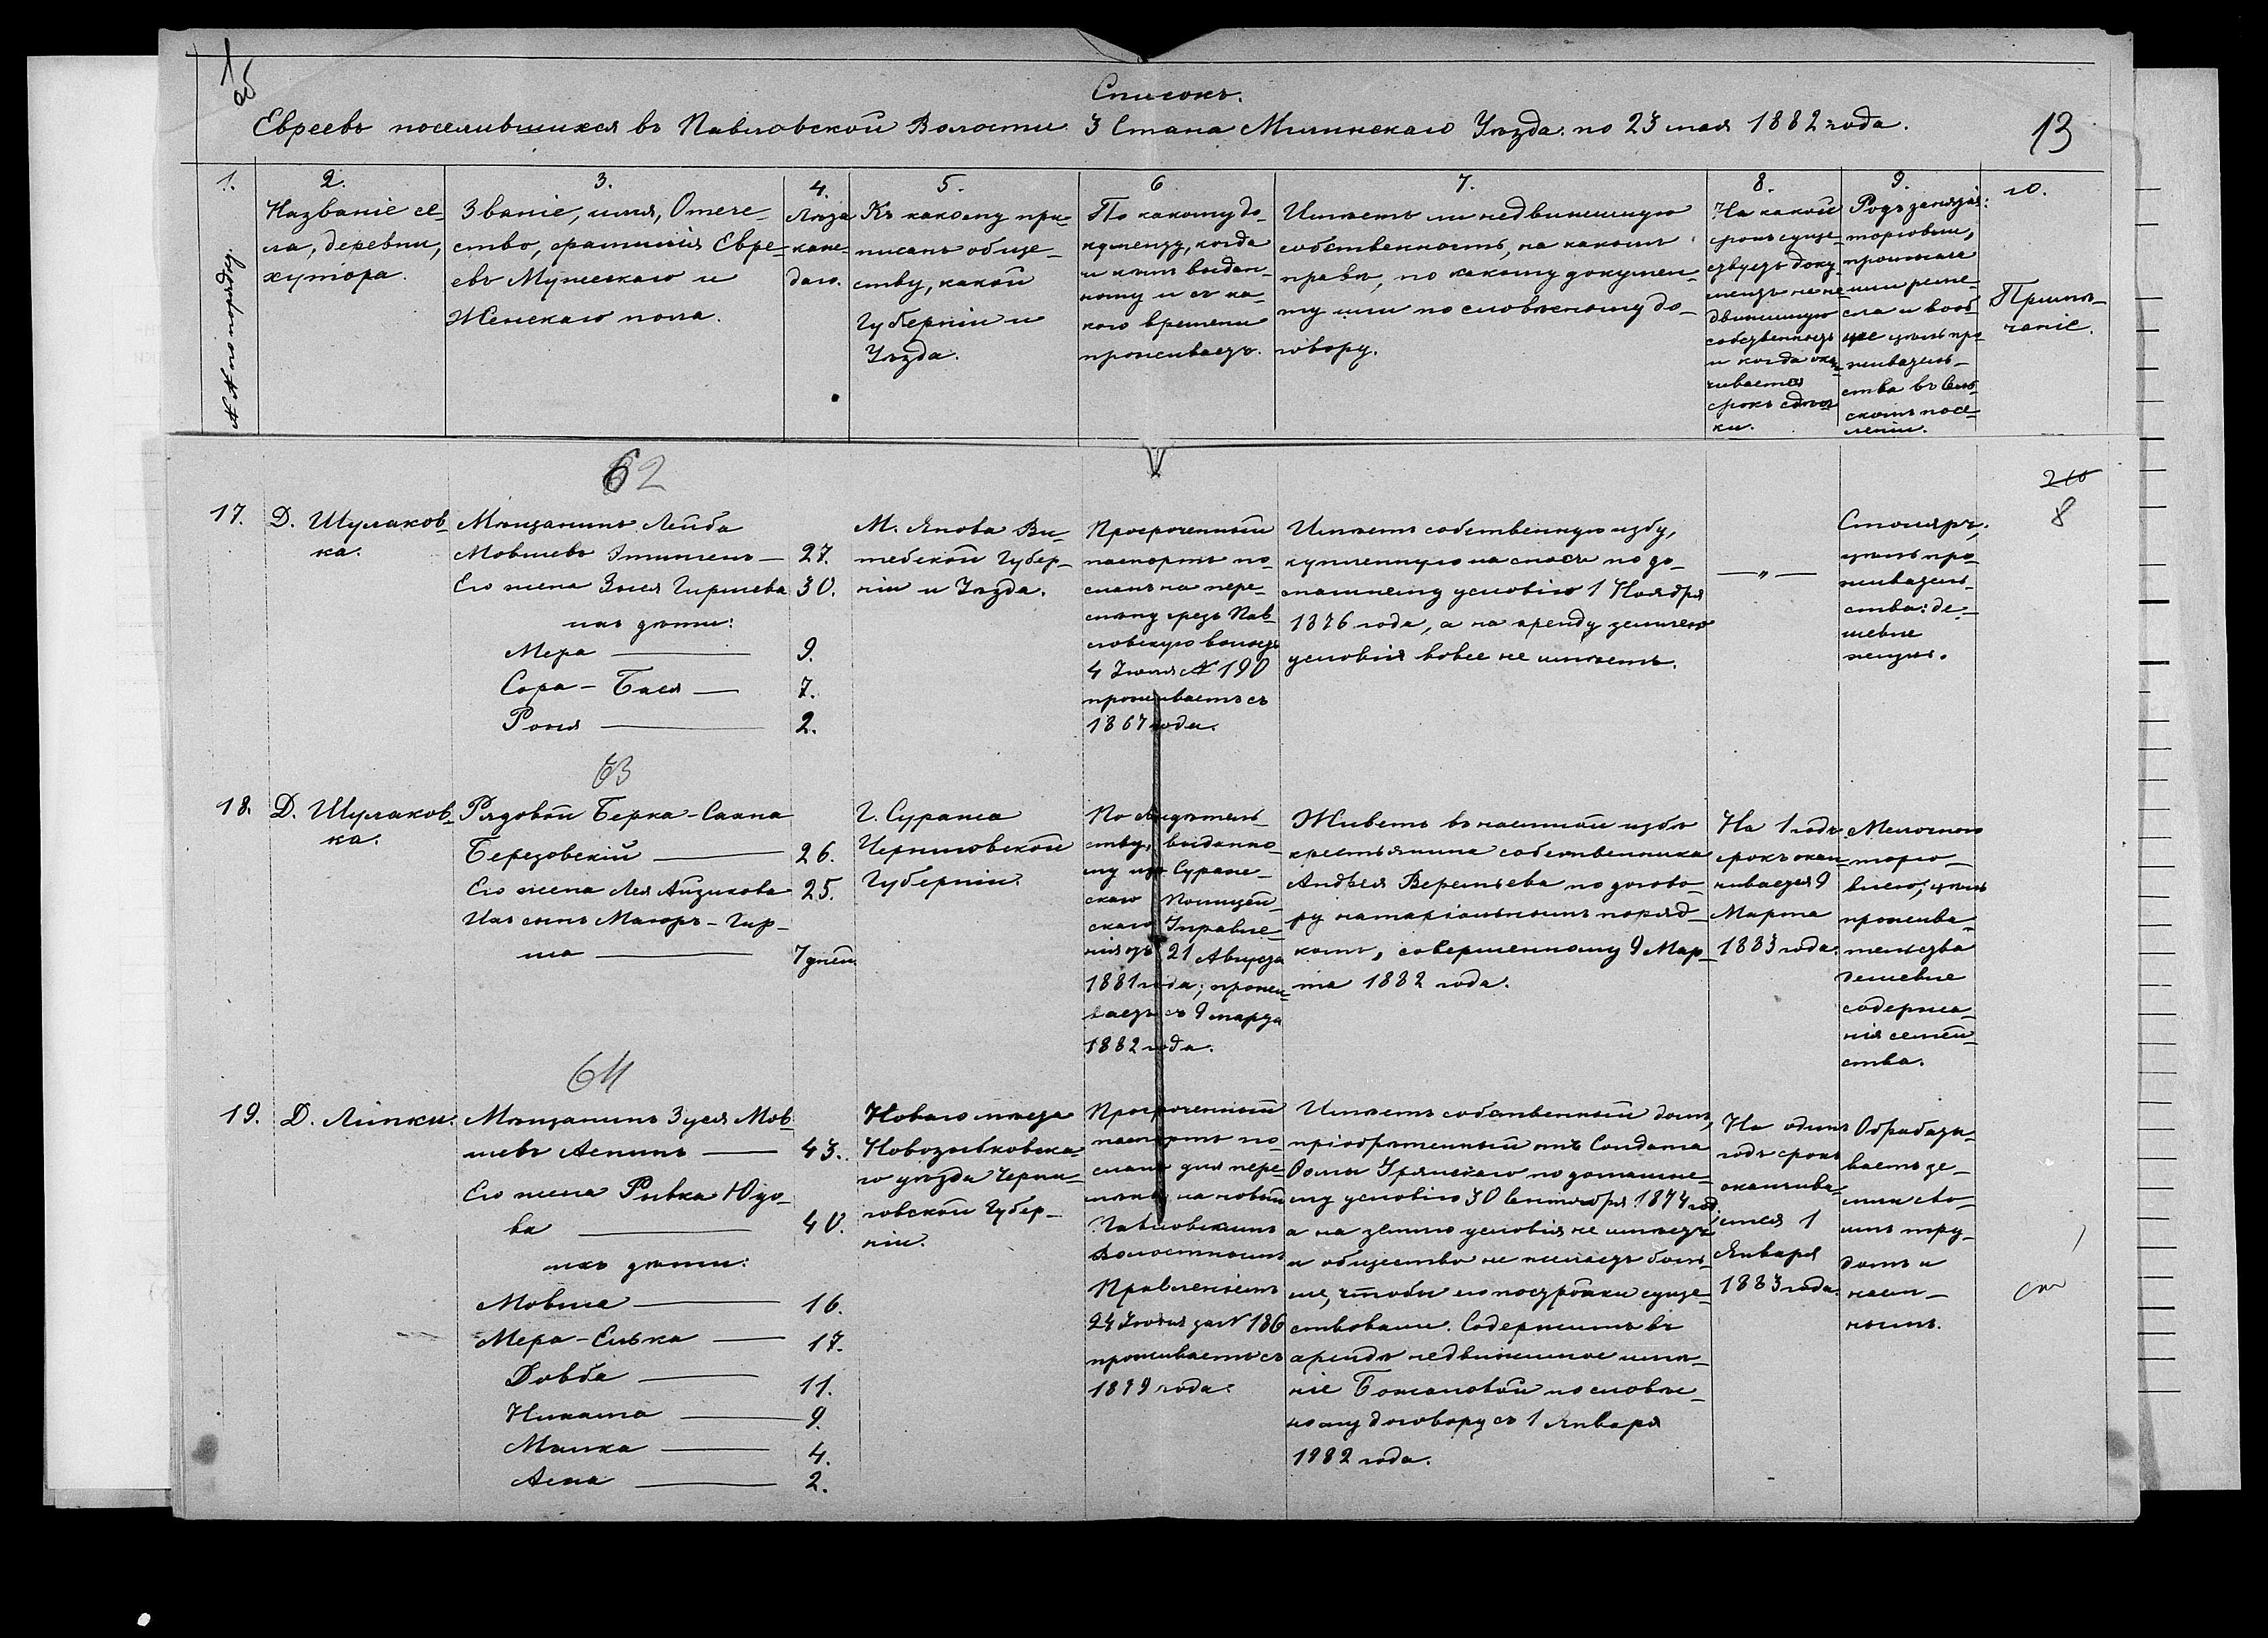 Списокъ.
Евреевъ поселившихся въ Павловской Волости 3 Стана Мглинскаго Уѣзда по 23 мая 1882 года.
13
1.
№ по порядку.
2.
Названіе се-
ла, деревни,
хутора.
3.
Званіе, имя, Отече-
ство, фамилія Евре-
евъ Мужескаго и
Женскаго пола.
4.
Лѣта
каж-
даго.
5.
Къ какому при-
писанъ обще-
ству, какой
Губерніи и
Уѣзда.
6
По какому до-
кументу, когда
и кѣмъ выдан-
ному и съ ка-
кого времени
проживаетъ.
7.
Имѣетъ ли недвижимую
собственность, на какомъ
правѣ, по какому докумен-
ту или по словѣсному до-
говору.
8.
На какой
срокъ суще-
ствуетъ доку-
ментъ на не-
движимую
собственность
и когда окан-
чивается
срокъ
9.
Родъ занятія:
торговли,
промысла
или реме-
сла и вооб-
ще цѣль про-
живатель-
ства въ Сель-
скомъ посе-
леніи.
10.
Примѣ-
чаніе.
62
17.
Д. Шулаков-
ка.
Мѣщанинъ Лейба
Мовшевъ
Его жена Злея Гиршева
ихъ дѣти:
Мера
Сора-Бася
Роня
27.
30.
9.
7.
2.
М. Янова Ви-
тебской Губер-
ніи и Уѣзда.
Просроченный
паспортъ по-
сланъ на пере-
мѣну чрезъ Пав-
ловскую волость
4 Іюня № 190
проживаетъ съ
1867 года.
Имѣетъ собственную избу,
купленную на сносъ по до-
машнему условію 1 Ноября
1876 года, а на аренду земли
условія вовсе не имѣетъ.
— „ —
Столяръ,
цѣль про-
живатель-
ства: де-
шевле
жизнь.
8
63
18.
Д. Шулаков-
ка.
Рядовой Берка-Саана
Березовскій
Его жена Лея Айзикова
Ихъ сынъ Маюръ-Гир-
ша
26.
25.
7 дней
Г. Суража
Черниговской
Губерніи.
По свидѣтель-
ству, выданно-
му изъ Сураж-
скаго Полицей-
скаго Управле-
нія отъ 21 Августа
1881 года; прожи-
ваетъ съ 9 марта
1882 года.
Живетъ въ наемной избѣ
крестьянина собственника
Андрея Веремьева по догово-
ру нотаріальнымъ поряд-
комъ, совершенному 9 Мар-
та 1882 года.
На 1 годъ
срокъ окан-
чивается 9
Марта
1883 года.
Мелочною
торго-
влею, цѣль
прожива-
тельства
дешевле
содержа-
нія семей-
ства.
64
19.
Д. Липки.
Мѣщанинъ Зуся Мов-
шевъ Аснинъ
Его жена Ривка Юдо-
ва
ихъ дѣти:
Мовша
Мера-Елька
Довба
Нихама
Малка
Асна
43.
40.
16.
17.
11.
9.
4.
2.
Новаго мѣста
Новозыбковска-
го уѣзда Черни-
говской Губер-
ніи.
Просроченный
паспортъ по-
сланъ для пере-
мѣны на новый
Павловскимъ
Волостнымъ
Правленіемъ
24 Іюня за № 186
проживаетъ съ
1879 года.
Имѣетъ собственный домъ,
пріобрѣтенный отъ Солдата
Фомы Урянскаго по домашне-
му условію 30 Сентября 1874 год.
а на землю условія не имѣетъ
и общество не желаетъ боль-
ше, чтобы его постройки суще-
ствовали. Содержитъ въ
арендѣ недвижимое имѣ-
ніе Божановой по словѣс-
ному договору съ 1 Января
1882 года.
На одинъ
годъ срокъ
оканчива-
ется 1
Января
1883 года.
Обрабаты-
ваетъ зе-
млю сво-
имъ тру-
домъ и
наем-
нымъ.